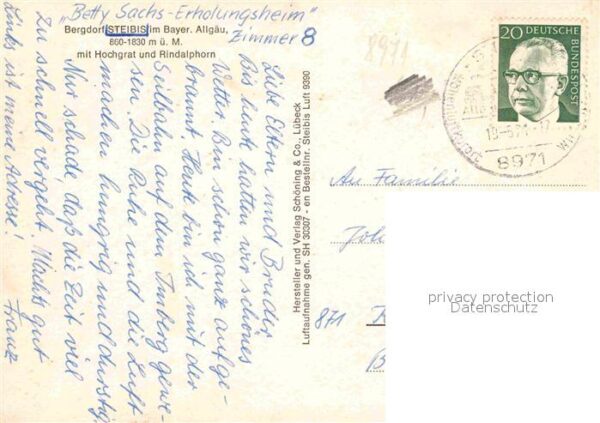 "Betty Sachs-Erholungsheim"
Zimmer 8
Bergdorf STEIBIS im Bayer. Allgäu,
860-1830 m ü. M.
mit Hochgrat und Rindalphorn
8971
Liebe Eltern und Bruder
Bis heut hatten wir schönes
Wetter. Bin schon ganz aufge-
brannt. Heute bin ich mit der
Seilbahn auf den Imberg gewe-
sen. Die Ruhe und die Luft
machen hungrig und durstig.
Nur schade, daß die Zeit viel
zu schnell vergeht. Macht's gut
Franz
Links ist meine Adresse!
Hersteller und Verlag Schöning & Co., Lübeck
Luftaufnahme gen. SH 30307 - en Bestellnr. Steibis Luft 9390
20 DEUTSCHE
BUNDESPOST
8971
An Familie
Joh
871
privacy protection
Datenschutz